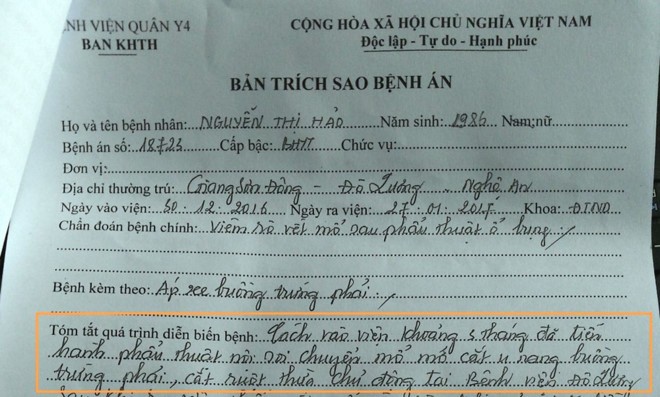 ỆNH VIỆN QUÂN Y4 CỘNG HÒA XÃ HỘI CHỦ NGHĨA VIỆT NAM
BAN KHTH Độc lập - Tự do - Hạnh phúc
BẢN TRÍCH SAO BỆNH ÁN
Họ và tên bệnh nhân: NGUYỄN THỊ HẢO Năm sinh: 1986 Nam; nữ
Bệnh án số: 18723 Cấp bậc: BHYT Chức vụ:
Đơn vị:
Địa chỉ thường trú: Giang Sơn Đông - Đô Lương - Nghệ An
Ngày vào viện: 30.12.2016 Ngày ra viện: 27.01.2017 Khoa:
Chẩn đoán bệnh chính: Viêm rò vết mổ sau phẫu thuật ổ bụng
Bệnh kèm theo: Áp xe buồng trứng phải
Tóm tắt quá trình diễn biến bệnh: Cách vào viện khoảng 5 tháng đã tiến
hành phẫu thuật nội soi chuyển mổ mở cắt u nang buồng
trứng phải, cắt ruột thừa chủ động tại Bệnh viện Đô Lương